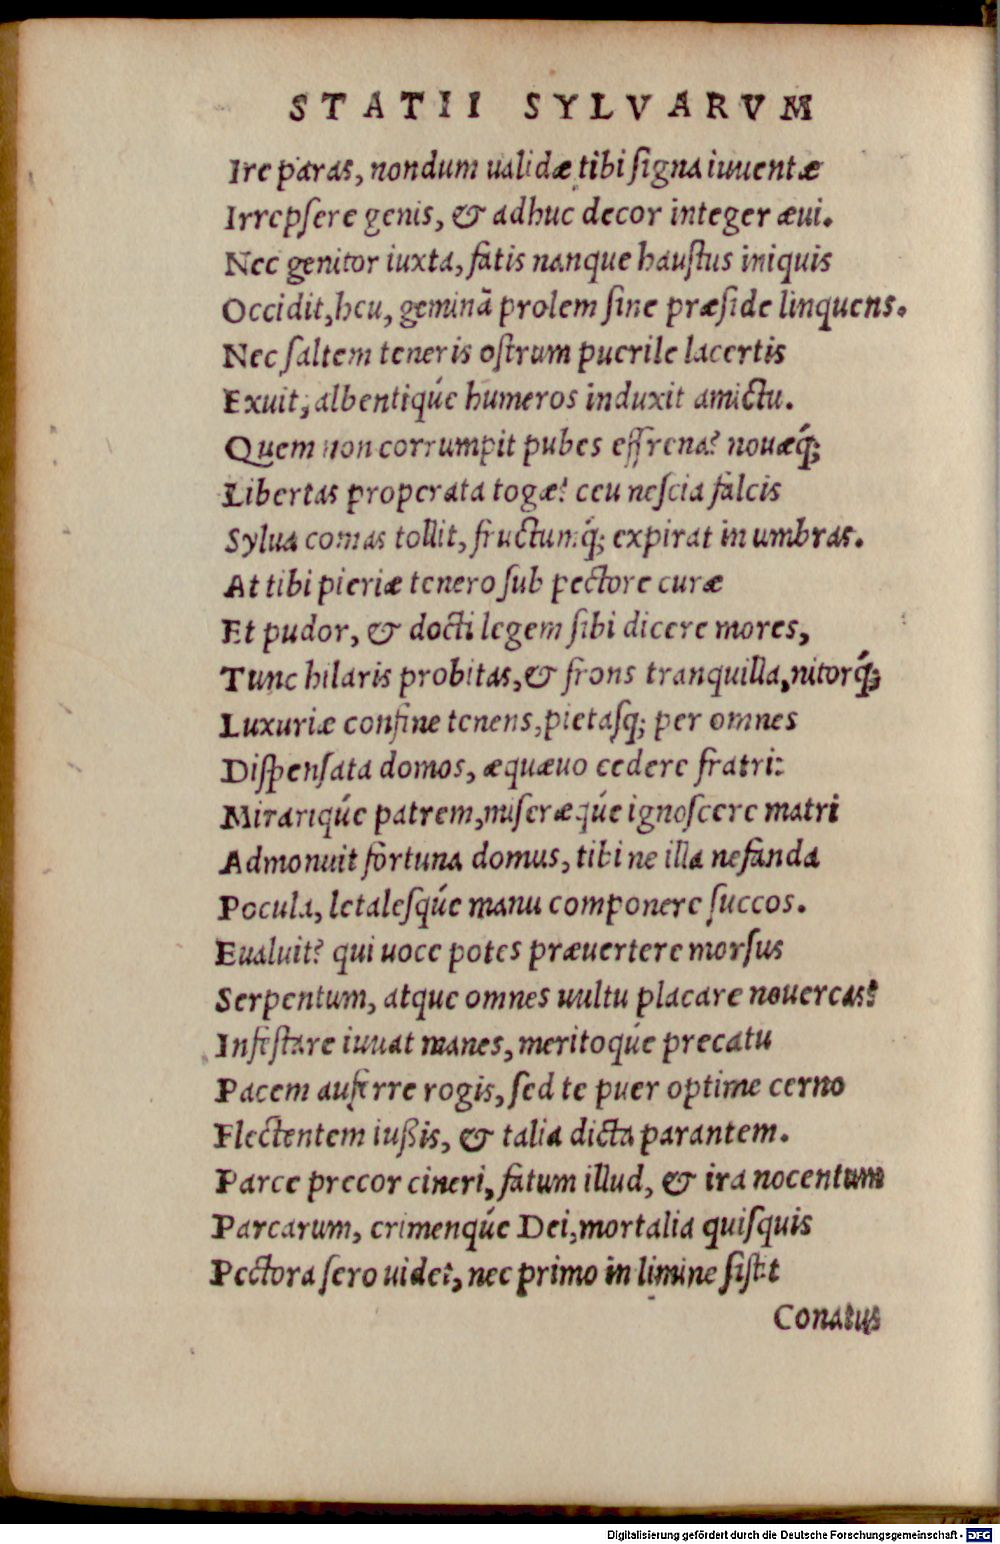 STATII SYLVARVM
Ire paras, nondum ualidæ tibi ſigna iuuentæ
Irrepſere genis, & adhuc decor integer æui.
Nec genitor iuxta, fatis nanque hauſtus iniquis
Occidit, heu, geminã prolem ſine præſide linquens.
Nec ſaltem teneris oſtrum puerile lacertis
Exuit, albentiqúe humeros induxit amictu.
Quem non corrumpit pubes effrena? nouæq́;
Libertas properata togæ? ceu neſcia falcis
Sylua comas tollit, fructumq́; expirat in umbras.
At tibi pieriæ tenero ſub pectore curæ
Et pudor, & docti legem ſibi dicere mores,
Tunc hilaris probitas, & frons tranquilla, nitorq́;
Luxuriæ confine tenens, pietaſq; per omnes
Diſpenſata domos, æquæuo cedere fratri:
Mirariqúe patrem, miſeræqúe ignoſcere matri
Admonuit fortuna domus, tibi ne illa nefanda
Pocula, letaleſqúe manu componere ſuccos.
Eualuit? qui uoce potes præuertere morſus
Serpentum, atque omnes uultu placare nouercas?
Infeſtare iuuat manes, meritoqúe precatu
Pacem auferre rogis, ſed te puer optime cerno
Flectentem iußis, & talia dicta parantem.
Parce precor cineri, fatum illud, & ira nocentum
Parcarum, crimenqúe Dei, mortalia quiſquis
Pectora ſero uidet, nec primo in limine ſiſtit
Conatus
Digitalisierung gefördert durch die Deutsche Forschungsgemeinschaft - DFG